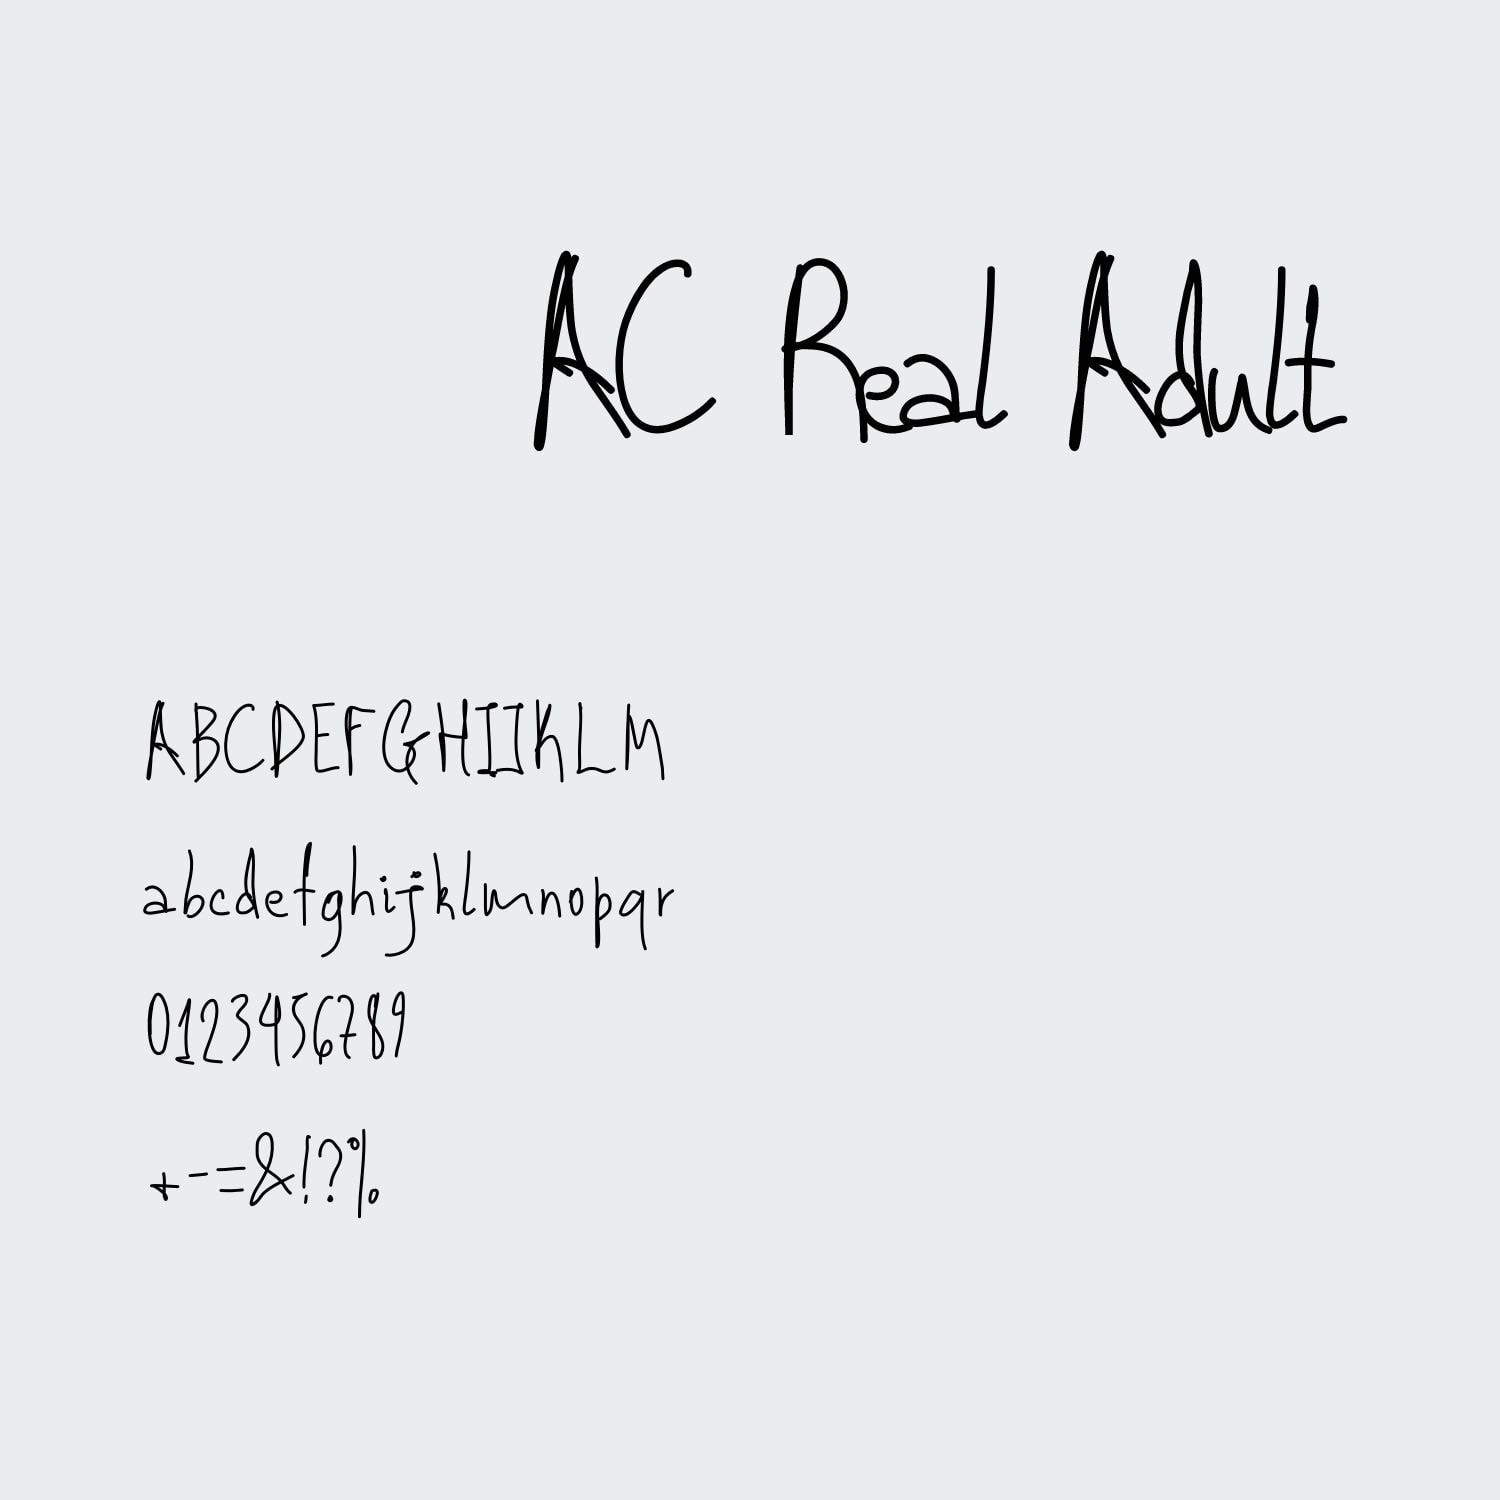 AC Real Adult
ABCDEFGHIJKLM
abcdefghijklmnopqr
0123456789
+-=&!?%